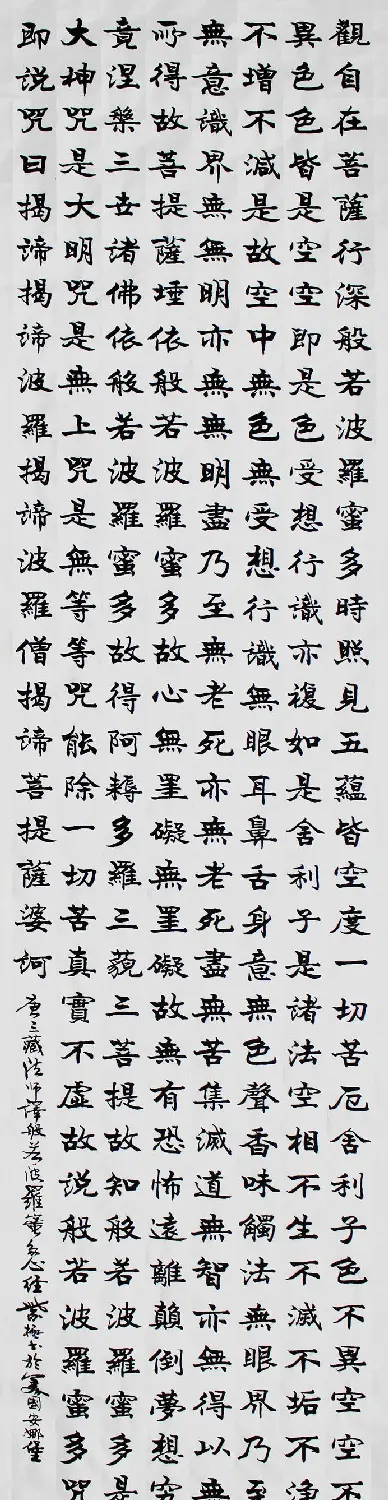 觀自在菩薩行深般若波羅蜜多時照見五蘊皆空度一切苦厄舍利子色不異空空不
異色色皆是空空即是色受想行識亦複如是舍利子是諸法空相不生不滅不垢不净
不增不減是故空中無色無受想行識無眼耳鼻舌身意無色聲香味觸法無眼界乃至
無意識界無無明亦無無明盡乃至無老死亦無老死盡無苦集滅道無智亦無得以無
所得故菩提薩埵依般若波羅蜜多故心無罣礙無罣礙故無有恐怖遠離顛倒夢想究
竟涅槃三世諸佛依般若波羅蜜多故得阿耨多羅三藐三菩提故知般若波羅蜜多是
大神咒是大明咒是無上咒是無等等咒能除一切苦真實不虛故説般若波羅蜜多咒
即説咒曰揭諦揭諦波羅揭諦波羅僧揭諦菩提薩婆訶
唐三藏法師譯般若波羅蜜多心經書於美國安娜堡